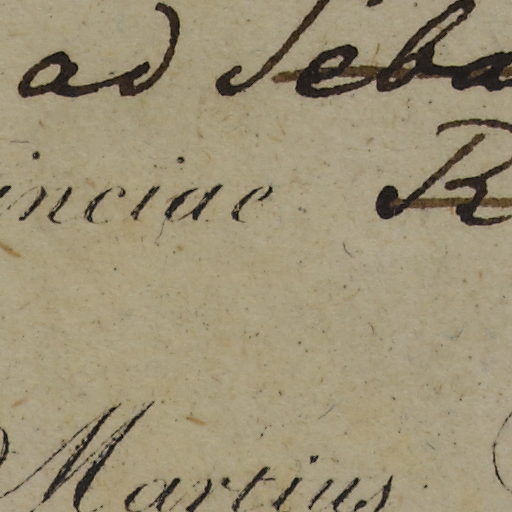 ad Seba
inciae R
Martius